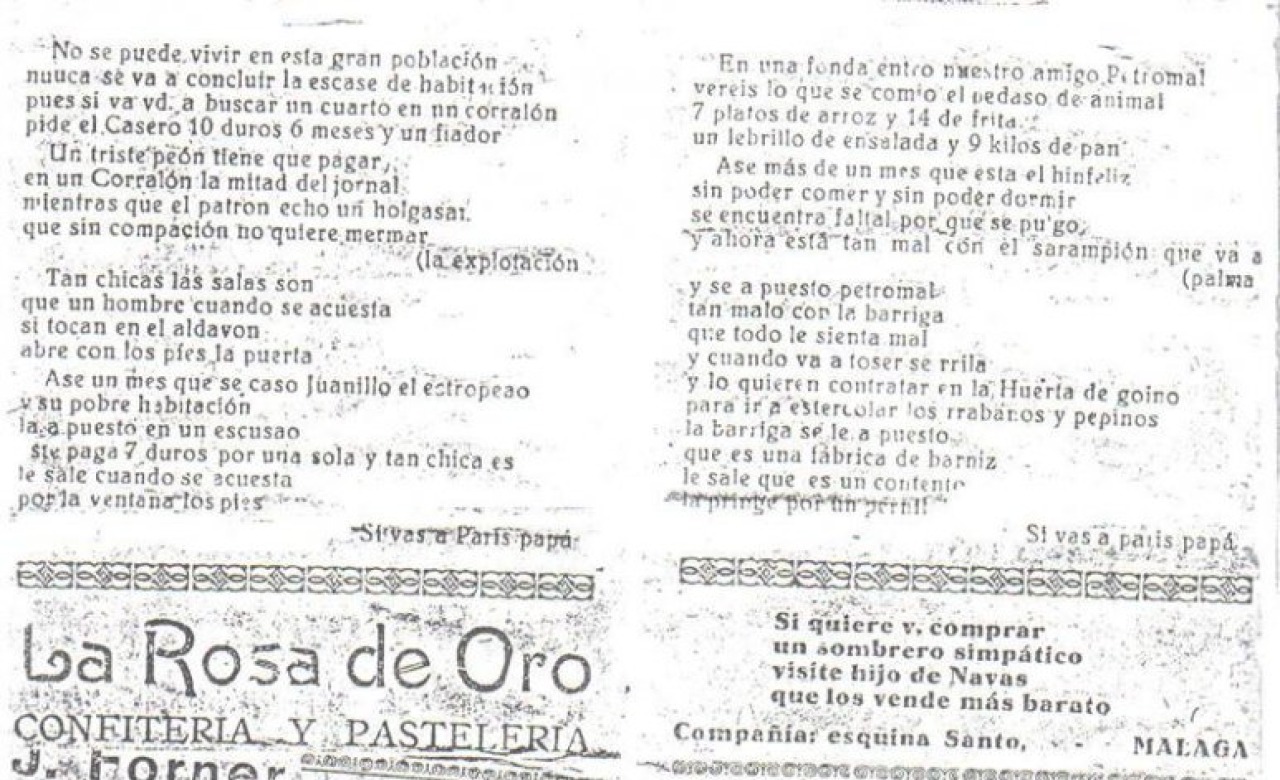 No se puede vivir en esta gran población
nuuca se va a concluir la escase de habit ión
pues si va vd. a buscar un cuarto en un corralón
pide el Casero 10 duros 6 meses y un fiador
Un triste peón tiene que pagar,
en un Corralón la mitad del jornal
mientras que el patron echo un holgasar.
que sin compación no quiere mermar
(la explotación
Tan chicas las salas son
que un hombre cuando se acuesta
si tocan en el aldavon
abre con los pies la puerta
Ase un mes que se caso Juanillo el estropeao
y su pobre habitación
la a puesto en un escusao
se paga 7 duros por una sola y tan chica es
le sale cuando se acuesta
por la ventana los pies
Si vas a Paris papá
La Rosa de Oro
CONFITERIA Y PASTELERIA
J. Forner
En una fonda entro nuestro amigo Petromal
vereis lo que se comio el pedaso de animal
7 platos de arroz y 14 de frita
un lebrillo de ensalada y 9 kilos de pan
Ase más de un mes que esta el hinfeliz
sin poder comer y sin poder dormir
se encuentra faltal por que se pu go,
y ahora está tan mal con el sarampión que va a
(palma
y se a puesto petromal
tan malo con la barriga
que todo le sienta mal
y cuando va a toser se rrila
y lo quieren contratar en la Huerta de goino
para ir a estercolar los rrabanos y pepinos
la barriga se le a puesto
que es una fábrica de barniz
le sale que es un contento
la pringe por un pernil
Si vas a paris papá
Si quiere v. comprar
un sombrero simpático
visite hijo de Navas
que los vende más barato
Compañia: esquina Santo, - - MALAGA